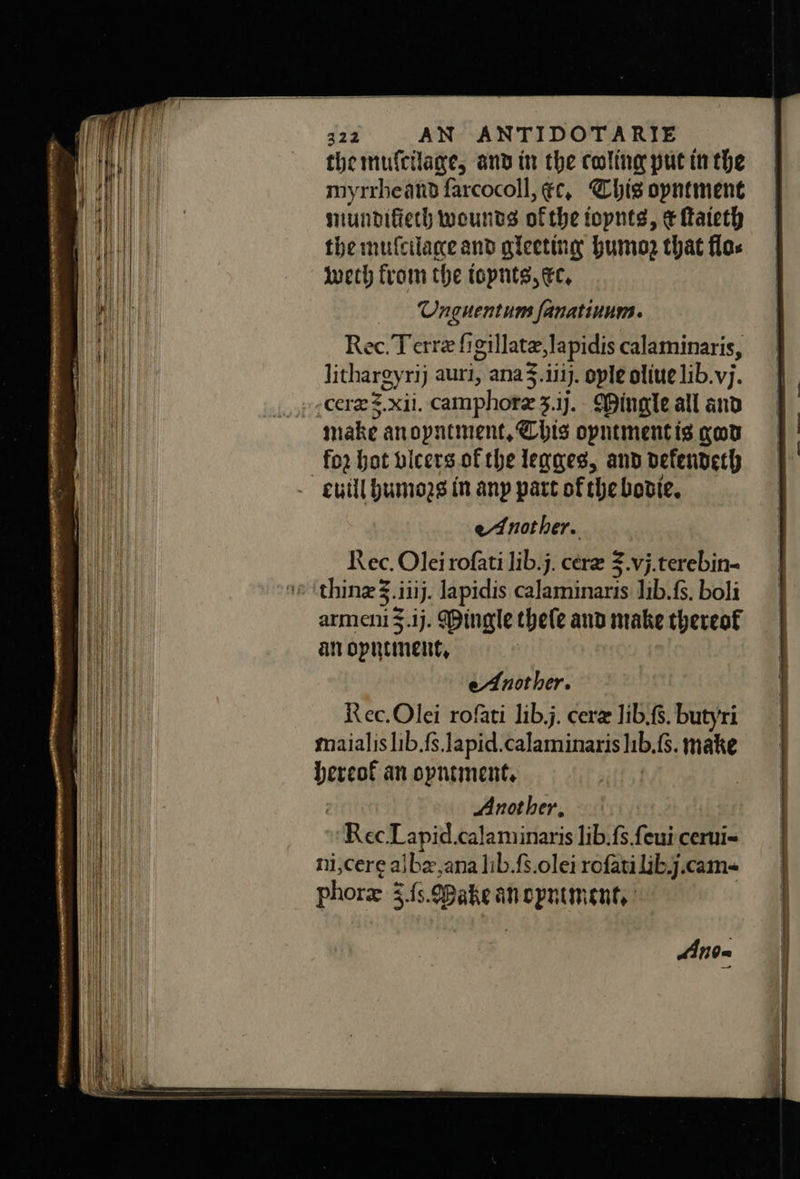 322 AN ANTIDOTARIE
the muſcilage, and in the cooling put in the
myrrhe and ſarcocoll, &c. This oyntment
mundifieth wounds of the ioynts, & ſtaieth
the muſcilage and gleeting humoꝛ that flo-
weth from the ioynts, &c.
Unguentum ſanatiuum.
Rec. Terræ ſigillatæ, lapidis calaminaris,
lithargyrij auri, ana ℥.iiij. oyle oliue lib.vj.
ceræ ℥.xii. camphoræ ʒ.ij. Mingle all and
make an oyntment. This oyntment is good
foꝛ hot vlcers of the legges, and defendeth
euill humoꝛs in any part of the bodie.
Another.
Rec. Olei roſati lib.j. ceræ ℥.vj. terebin-
thinæ ℥.iiij. lapidis calaminaris lib.ſs. boli
armeni ℥.ij. Mingle theſe and make thereof
an oyntment.
Another.
Rec. Olei roſati lib.j. ceræ lib.ſs. butyri
maialis lib.ſs. lapid. calaminaris lib.ſs. make
hereof an oyntment.
Another.
Rec. Lapid. calaminaris lib.ſs. ſeui cerui-
ni, cere albæ, ana lib.ſs. olei roſati lib.j. cam-
phoræ ℥.ſs. Make an oyntment.
Ano-